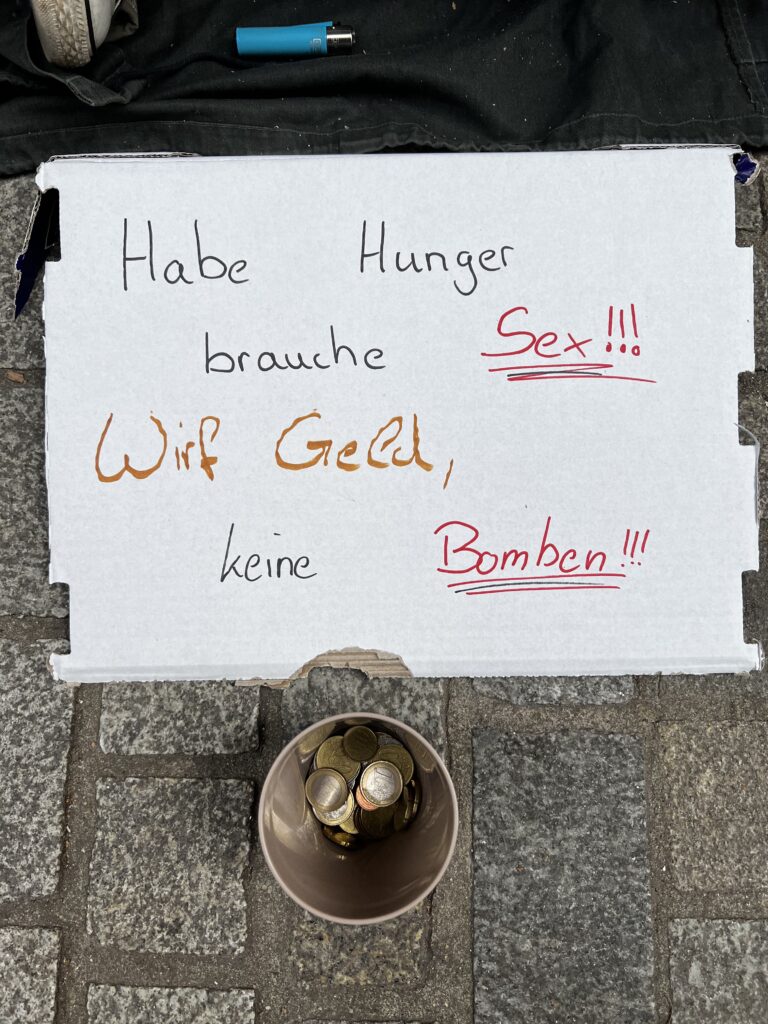 Habe Hunger
brauche Sex!!!
Wirf Geld,
keine Bomben!!!